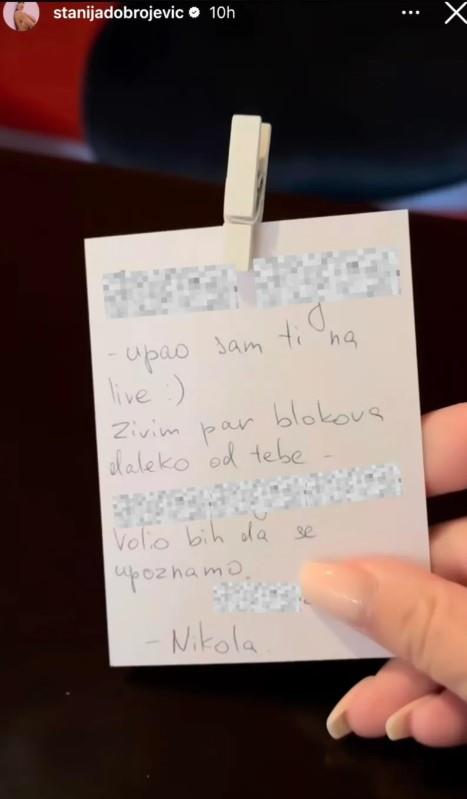 stanijadobrojevic 10h
- upao sam ti na
live :)
Zivim par blokova
daleko od tebe -
Volio bih da se
upoznamo.
- Nikola.